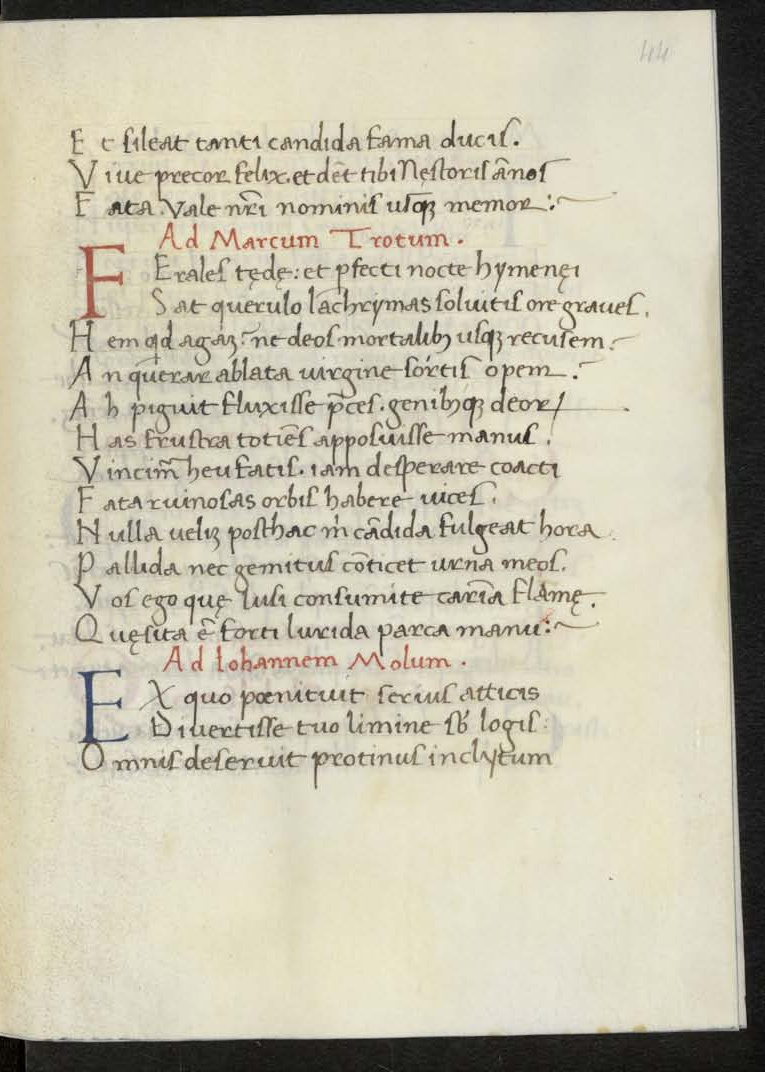 44
Et sileat tanti candida fama ducis.
Viue precor felix. et dēt tibi Nęstoris ānos
Fata. Vale nr̄i nominis usq; memor:~
Ad Marcum Trotum.
FErales tędę: et pfecti nocte hymenęi
Sat querulo lāchrymas soluitis ore graues.
Hem qd agaꝫ? ne deos mortalibꝫ usqꝫ recusem?
An quęrar ablata uirgine sortis opem?
Ah piguit fluxisse p̄ces. genibꝫqꝫ deoꝝ
Has frustra totiēs apposuisse manus.
Vincim̄ heu fatis. iam desperare coacti
Fata ruinosas orbis habere uices.
Nulla ueliꝫ posthac m̄ cādida fulgeat hora.
Pallida nec gemitus cōticet urna meos.
Vos ego quę lusi consumite carīa flāmę.
Quęsita ē forti lurida parca manu:~
Ad Iohannem Molum.
EX quo pœnituit serius atticis
Diuertisse tuo limine sb̄ logis:
Omnis deseruit protinus inclytum